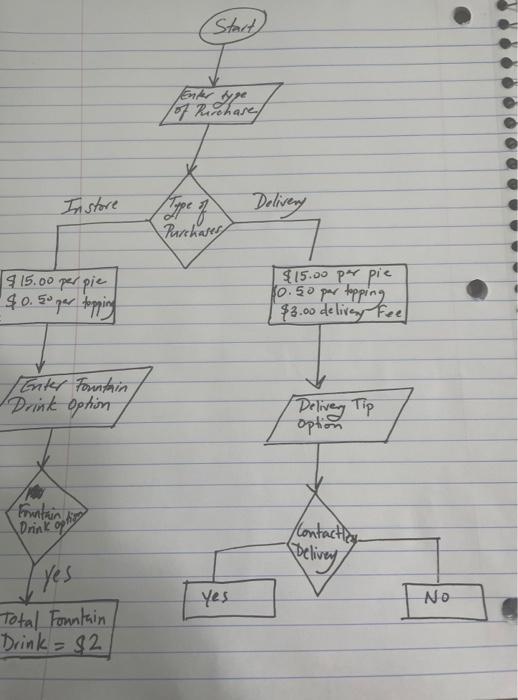 Start
Enter type
of Purchase
Instore
Type of
Purchases
Delivery
$15.00 per pie
$0.50 per topping
$15.00 per pie
$0.50 per topping
$3.00 delivery Fee
Enter Fountain
Drink Option
Delivery Tip
option
Fountain
Drink option
Contactless
Delivery
yes
yes
NO
Total Fountain
Drink = $2